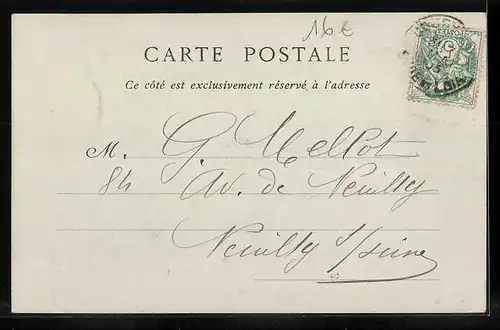 16€
CARTE POSTALE
Ce côté est exclusivement réservé à l'adresse
M. G. Mellot
84 Av. de Neuilly
Neuilly s/seine